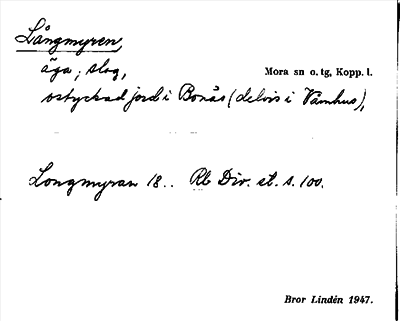 Långmyren,
äga; slog,
Mora sn o. tg, Kopp. l.
ostyckad jord i Bonäs (delvis i Våmhus),
Longmyran 18.. Rb Div. st. s. 100.
Bror Lindén 1947.